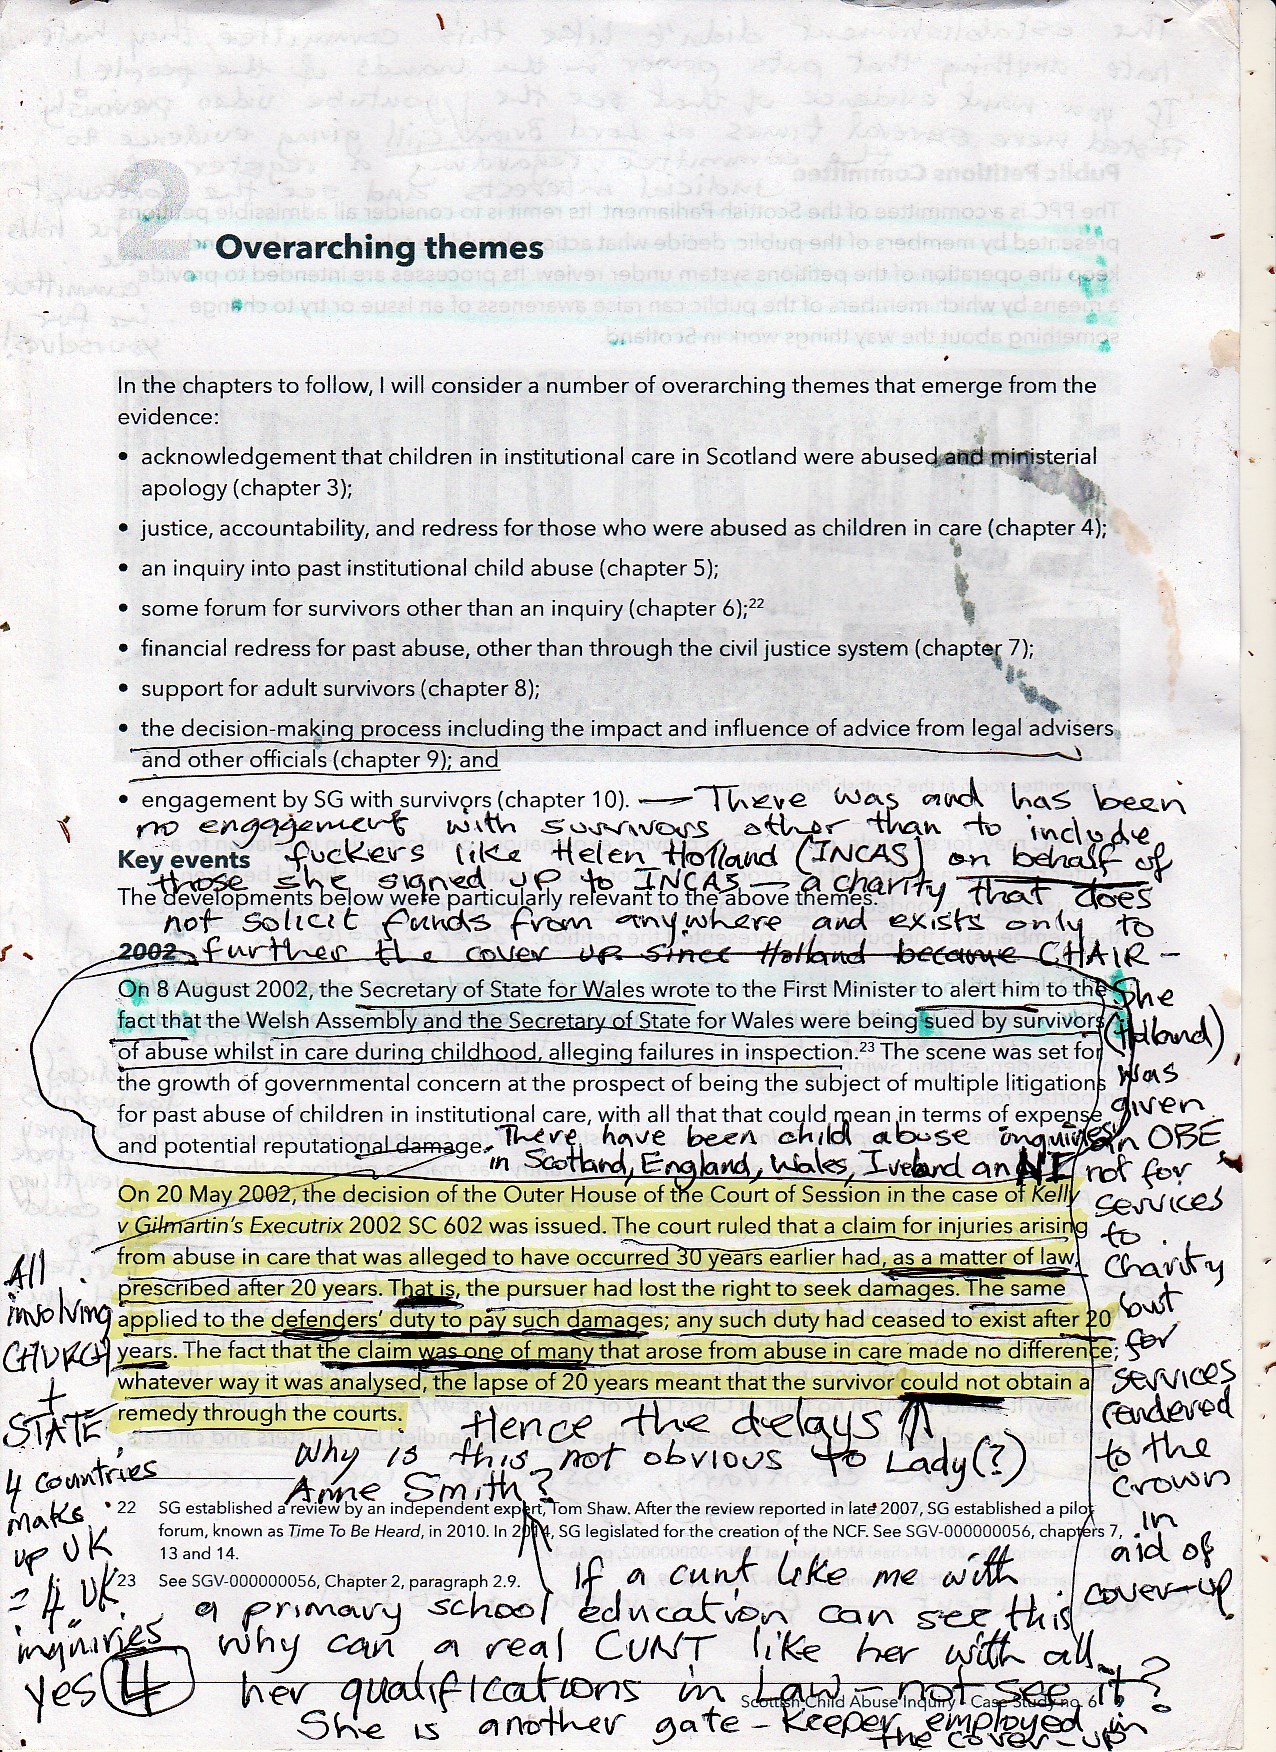 2
Overarching themes
In the chapters to follow, I will consider a number of overarching themes that emerge from the
evidence:
• acknowledgement that children in institutional care in Scotland were abused and ministerial
apology (chapter 3);
• justice, accountability, and redress for those who were abused as children in care (chapter 4);
• an inquiry into past institutional child abuse (chapter 5);
• some forum for survivors other than an inquiry (chapter 6);22
• financial redress for past abuse, other than through the civil justice system (chapter 7);
• support for adult survivors (chapter 8);
• the decision-making process including the impact and influence of advice from legal advisers
and other officials (chapter 9); and
• engagement by SG with survivors (chapter 10).
— There was and has been
no engagement with survivors other than to include
fuckers like Helen Holland (INCAS) on behalf of
those she signed up to INCAS — a charity that does
not solicit funds from anywhere and exists only to
further the cover up since Holland became CHAIR –
She
(Holland)
was
given
an OBE
not for
services
to
charity
but
for
services
rendered
to the
crown
in
aid of
cover-up
Key events
The developments below were particularly relevant to the above themes.
2002
On 8 August 2002, the Secretary of State for Wales wrote to the First Minister to alert him to the
fact that the Welsh Assembly and the Secretary of State for Wales were being sued by survivors
of abuse whilst in care during childhood, alleging failures in inspection.23 The scene was set for
the growth of governmental concern at the prospect of being the subject of multiple litigations
for past abuse of children in institutional care, with all that that could mean in terms of expense
and potential reputational damage.
There have been child abuse inquiries
in Scotland, England, Wales, Ireland an NI
All
involving
CHURCH
+
STATE
4 countries
maks
up UK
= 4 UK
inquiries
yes 4
On 20 May 2002, the decision of the Outer House of the Court of Session in the case of Kelly
v Gilmartin's Executrix 2002 SC 602 was issued. The court ruled that a claim for injuries arising
from abuse in care that was alleged to have occurred 30 years earlier had, as a matter of law,
prescribed after 20 years. That is, the pursuer had lost the right to seek damages. The same
applied to the defenders' duty to pay such damages; any such duty had ceased to exist after 20
years. The fact that the claim was one of many that arose from abuse in care made no difference;
whatever way it was analysed, the lapse of 20 years meant that the survivor could not obtain a
remedy through the courts.
Hence the delays
Why is this not obvious to Lady(?)
Anne Smith?
22 SG established a review by an independent expert, Tom Shaw. After the review reported in late 2007, SG established a pilot
forum, known as Time To Be Heard, in 2010. In 2014, SG legislated for the creation of the NCF. See SGV-000000056, chapters 7,
13 and 14.
23 See SGV-000000056, Chapter 2, paragraph 2.9.
If a cunt like me with
a primary school education can see this
why can a real CUNT like her with all
her qualifications in Law – not see it?
She is another gate-keeper employed in
the cover-up
Scottish Child Abuse Inquiry Case Study no. 6 9